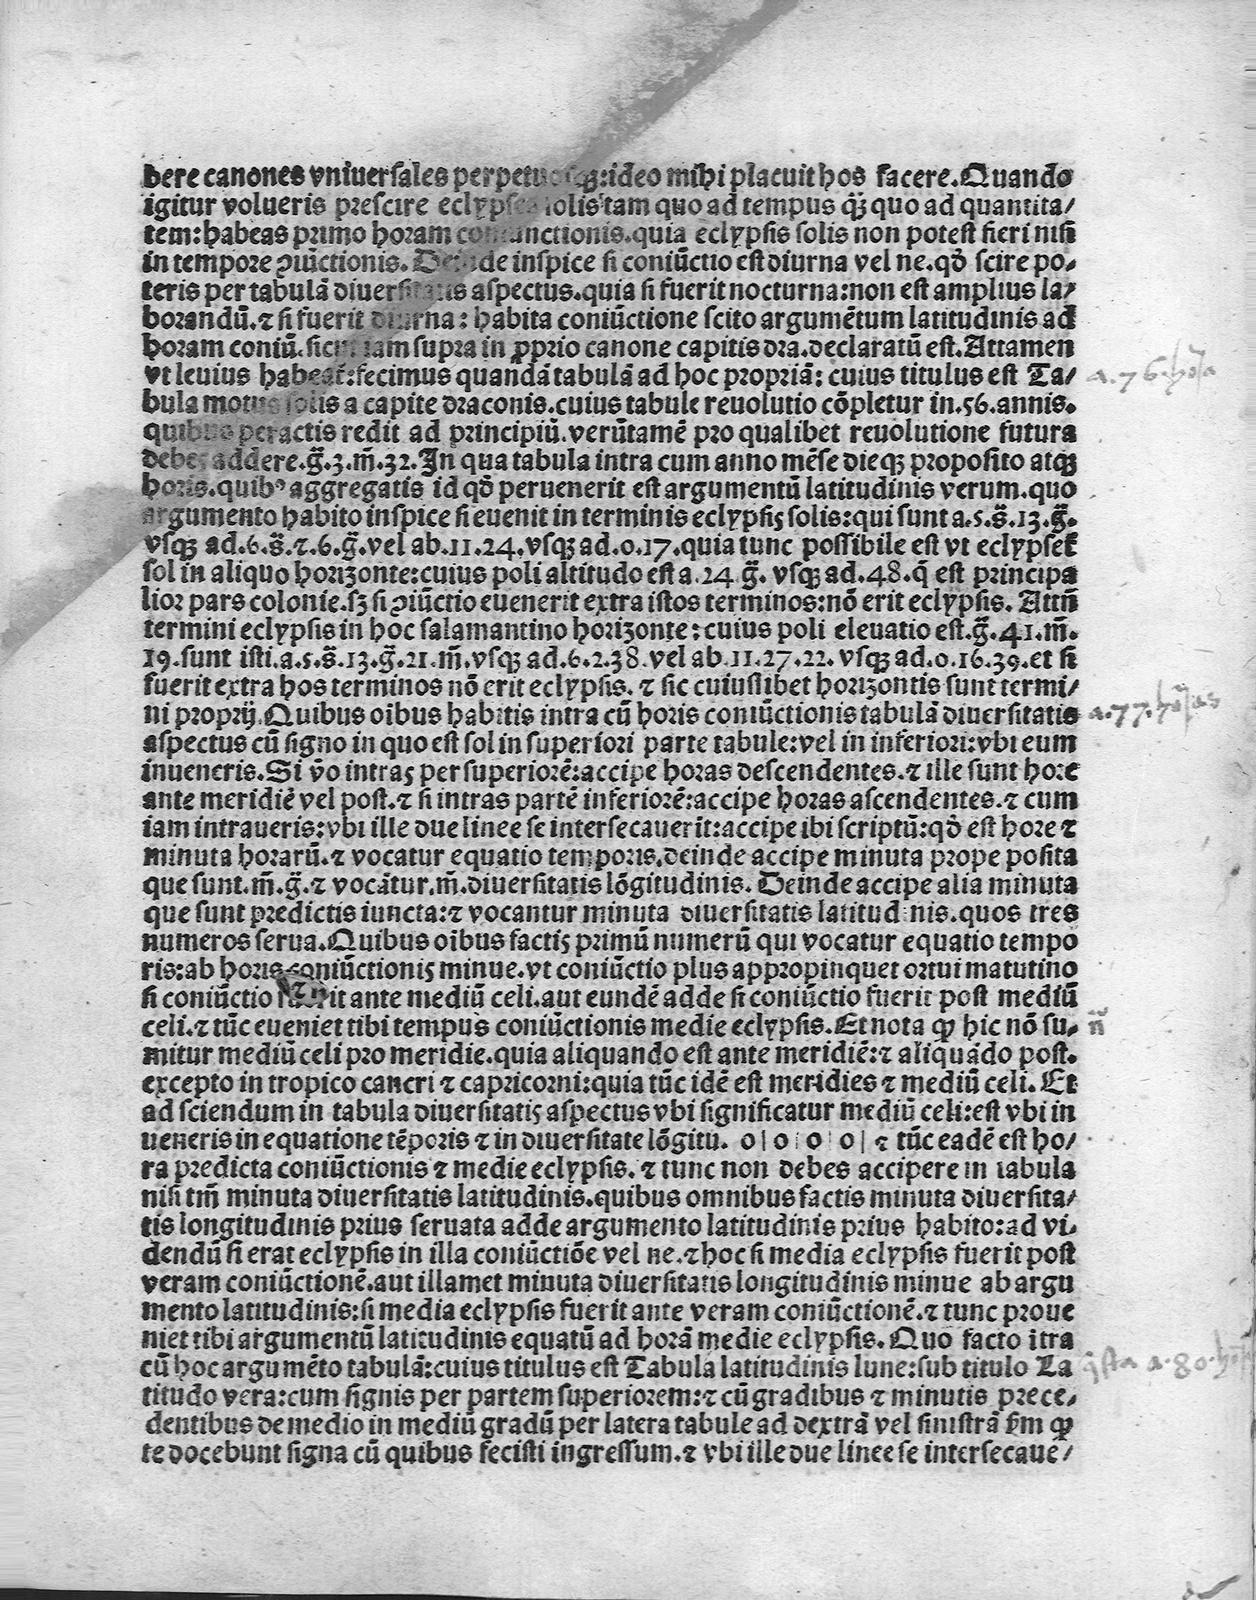 bere canones vniuersales perpetuosq̃:ideo mihi placuit hos facere.Quando
igitur volueris prescire eclypses solis tam quo ad tempus q̃ȝ quo ad quantita/
tem:habeas primo horam coniunctionis.quia eclypsis solis non potest fieri nisi
in tempore ꝯiũctionis. Deinde inspice si coniũctio est diurna vel ne.qđ scire po/
teris per tabulã diuersitatis aspectus.quia si fuerit nocturna:non est amplius la/
borandũ.⁊ si fuerit diurna: habita coniũctione scito argumẽtum latitudinis ad
horam coniũ.sicut iam supra in ꝓprio canone capitis dra.declaratũ est.Attamen
vt leuius habeat̃:fecimus quandã tabulã ad hoc propriã: cuius titulus est Ta/
a.76.hoja
bula motus solis a capite draconis.cuius tabule reuolutio cõpletur in.56.annis.
quibus peractis redit ad principiũ.verũtamẽ pro qualibet reuolutione futura
debes addere.g̃.3.m̃.32.In qua tabula intra cum anno mẽse dieqȝ proposito atqȝ
horis.quibꝰ aggregatis id qđ peruenerit est argumentũ latitudinis verum.quo
argumento habito inspice si euenit in terminis eclypsis solis:qui sunt a.5.s̃.13.g̃.
vsqȝ ad.6.s̃.⁊.6.g̃.vel ab.11.24.vsqȝ ad.0.17.quia tunc possibile est vt eclypset̃
sol in aliquo horizonte:cuius poli altitudo est a.24 g̃. vsqȝ ad.48.q̃ est principa
lior pars colonie.sȝ si ꝯiũctio euenerit extra istos terminos:nõ erit eclypsis. Attñ
termini eclypsis in hoc salamantino horizonte:cuius poli eleuatio est.g̃.41.m̃.
19.sunt isti.a.5.s̃.13.g̃.21.m̃.vsqȝ ad.6.2.38.vel ab.11.27.22.vsqȝ ad.0.16.39.et si
fuerit extra hos terminos nõ erit eclypsis. ⁊ sic cuiuslibet horizontis sunt termi/
ni proprij.Quibus oibus habitis intra cũ horis coniũctionis tabulã diuersitatis
a.77.hojas
aspectus cũ signo in quo est sol in superiori parte tabule:vel in inferiori:vbi eum
inueneris.Si v̊o intras per superiorẽ:accipe horas descendentes.⁊ ille sunt hore
ante meridiẽ vel post.⁊ si intras partẽ inferiorẽ:accipe horas ascendentes.⁊ cum
iam intraueris:vbi ille due linee se intersecauerĩt:accipe ibi scriptũ:qđ est hore ⁊
minuta horarũ.⁊ vocatur equatio temporis.deinde accipe minuta prope posita
que sunt.m̃.g̃.⁊ vocãtur.m̃.diuersitatis lõgitudinis. Deinde accipe alia minuta
que sunt predictis iuncta:⁊ vocantur minuta diuersitatis latitudinis.quos tres
numeros serua.Quibus oibus factis primũ numerũ qui vocatur equatio tempo
ris:ab horis coniũctionis minue.vt coniũctio plus appropinquet ortui matutino
si coniũctio fuerit ante mediũ celi.aut eundẽ adde si coniũctio fuerit post mediũ
celi.⁊ tũc eueniet tibi tempus coniũctionis medie eclypsis.Et nota ꝙ hic nõ su/
ñ
mitur mediũ celi pro meridie.quia aliquando est ante meridiẽ:⁊ aliquãdo post.
excepto in tropico cancri ⁊ capricorni:quia tũc idẽ est meridies ⁊ mediũ celi. Et
ad sciendum in tabula diuersitatis aspectus vbi significatur mediũ celi:est vbi in
ueneris in equatione tẽporis ⁊ in diuersitate lõgitu. 0|0|0|0|⁊ tũc eadẽ est ho/
ra predicta coniũctionis ⁊ medie eclypsis. ⁊ tunc non debes accipere in tabula
nisi tm̃ minuta diuersitatis latitudinis.quibus omnibus factis minuta diuersita/
tis longitudinis prius seruata adde argumento latitudinis prius habito:ad vi/
dendũ si erat eclypsis in illa coniũctiõe vel ne.⁊ hoc si media eclypsis fuerit post
veram coniũctionẽ.aut illamet minuta diuersitatis longitudinis minue ab argu
mento latitudinis:si media eclypsis fuerit ante veram coniũctionẽ.⁊ tunc proue
niet tibi argumentũ latitudinis equatũ ad horã medie eclypsis. Quo facto itra
cũ hoc argumẽto tabulã:cuius titulus est Tabula latitudinis lune:sub titulo La
a.80.
titudo vera:cum signis per partem superiorem:⁊ cũ gradibus ⁊ minutis prece/
dentibus de medio in mediũ gradũ per latera tabule ad dextrã vel sinistrã s̃m ꝙ
te docebunt signa cũ quibus fecisti ingressum.⁊ vbi ille due linee se intersecaue/